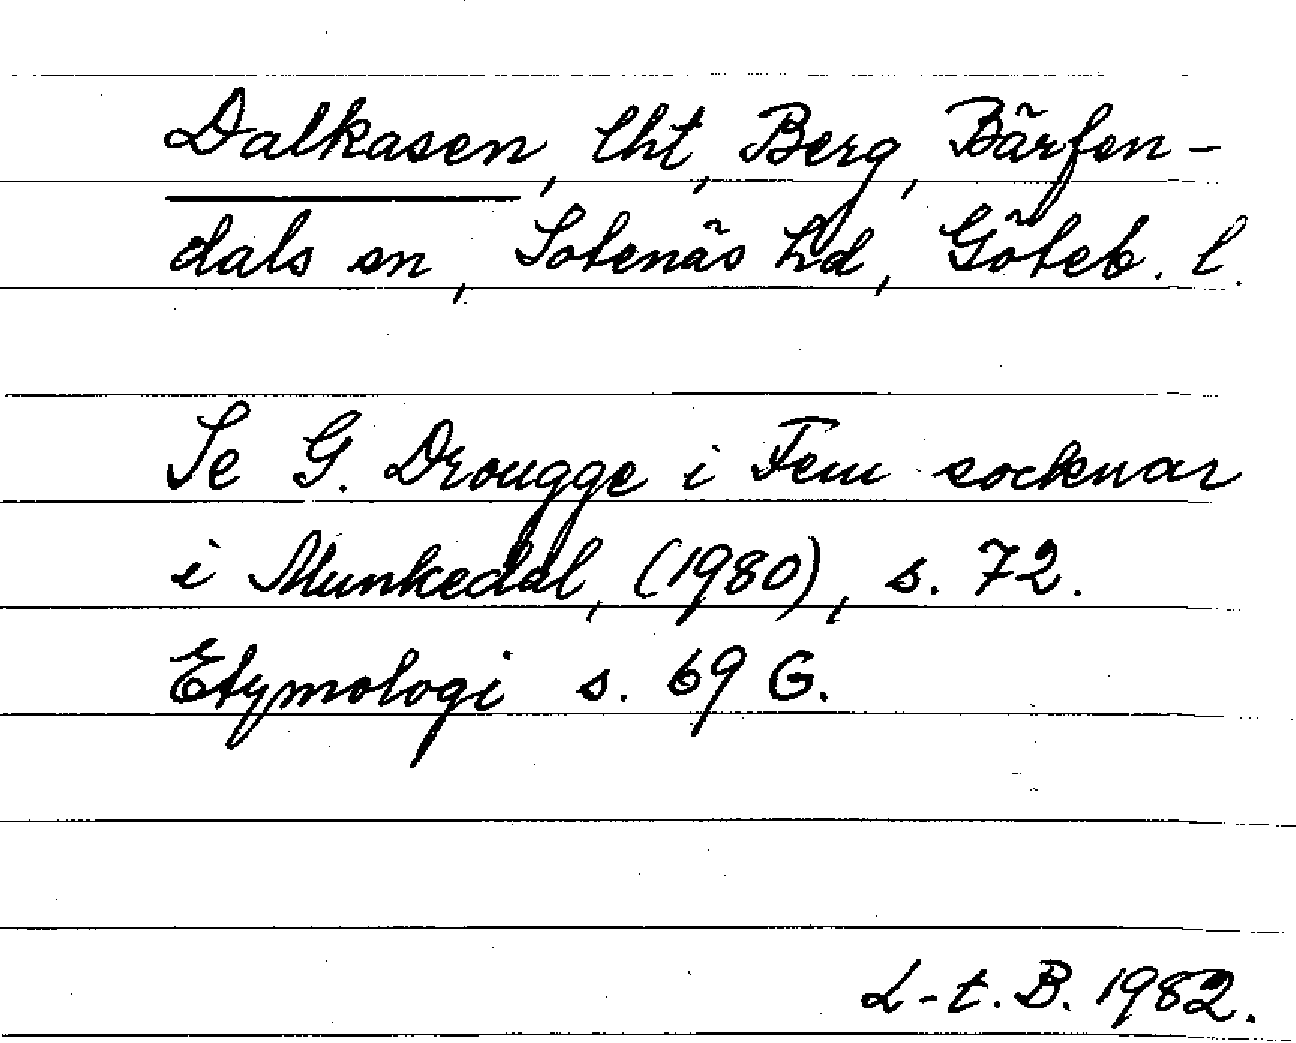 Dalkasen, lht, Berg, Bärfen-
dals sn, Sotenäs hd, Göteb. l.
Se G. Drougge i Fem socknar
i Munkedal, (1980), s. 72.
Etymologi s. 69 G.
L-t. B. 1982.